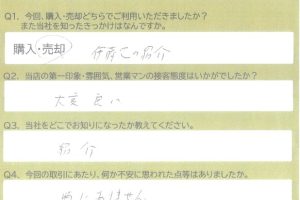 Q1. 今回、購入・売却どちらでご利用いただきましたか？
また当社を知ったきっかけはなんですか。
購入・売却 の紹介
Q2. 当店の第一印象・雰囲気、営業マンの接客態度はいかがでしたか？
大変良い
Q3. 当社をどこでお知りになったか教えてください。
紹介
Q4. 今回の取引にあたり、何か不安に思われた点等はありましたか。
特にありません